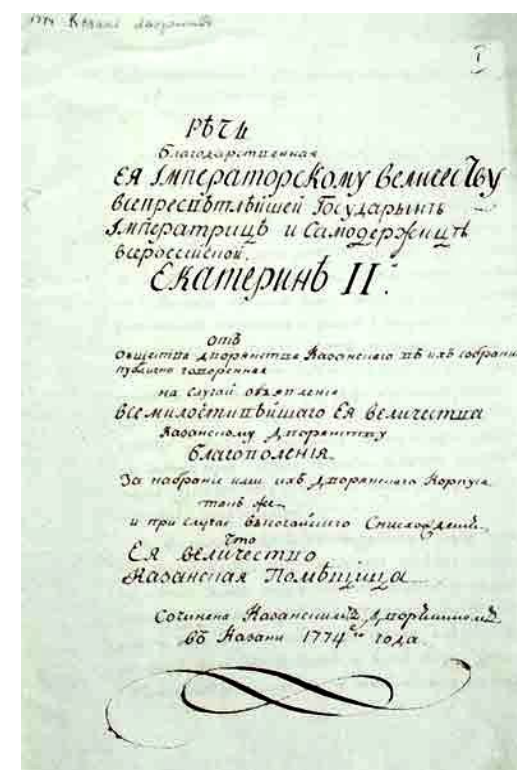 1774 Казань дворянство
I
Рѣчь
благодарственная
Ея Императорскому Величеству
Всепресвѣтлѣйшей Государынѣ
Императрицѣ и Самодержицѣ
всероссійской
Екатеринѣ II.
отъ
общества дворянства Казанскаго въ ихъ собрани
публично говоренная
на случай объявленія
всемилостивѣйшаго Ея величества
Казанскому Дворянству
благоволенія
За набраніе ими ихъ Дворянскаго Корпуса
такъ же
и при случае высочайшаго
что
Ея величество
Казанская Помѣщица
Сочинена Казанскимъ Дворяниномъ
въ Казани 1774 года